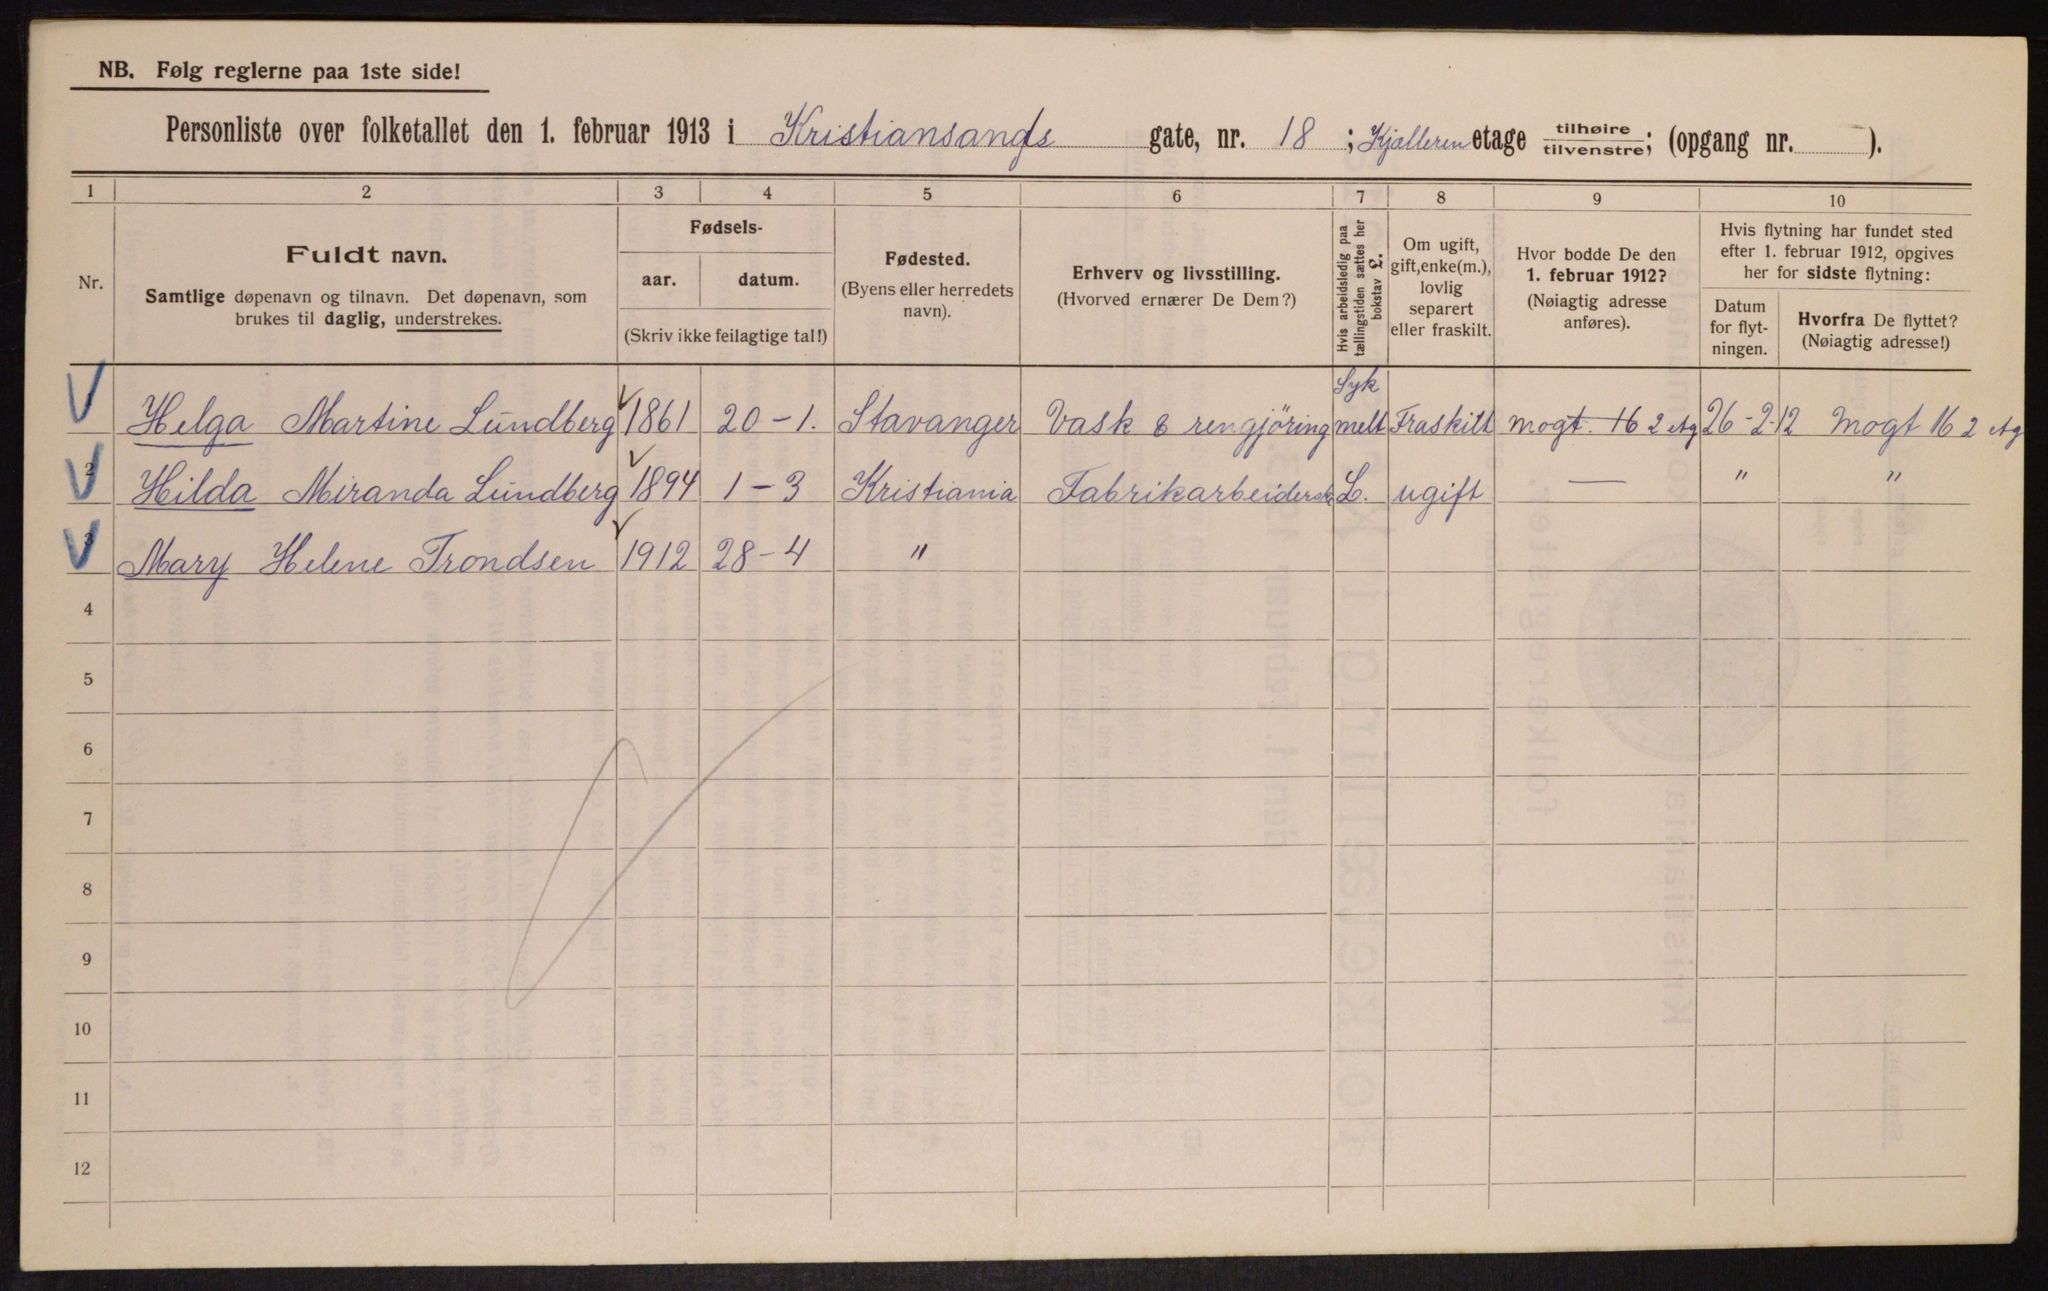 NB. Følg reglerne paa 1ste side!
Personliste over folketallet den 1. februar 1913 i Kristiansands gate, nr. 18 ; Kjælleren etage tilhøire tilvenstre; (opgang nr. ).
1 2 3 4 5 6 7 8 9 10
Nr.
Fuldt navn.
Samtlige døpenavn og tilnavn. Det døpenavn, som
brukes til daglig, understrekes.
Fødsels-
aar. datum.
(Skriv ikke feilagtige tal!)
Fødested.
(Byens eller herredets
navn).
Erhverv og livsstilling.
(Hvorved ernærer De Dem?)
Hvis arbeidsledig paa
tællingstiden sættes her
bokstav L.
Om ugift,
gift, enke(m.),
lovlig
separert
eller fraskilt.
Hvor bodde De den
1. februar 1912?
(Nøiagtig adresse
anføres).
Hvis flytning har fundet sted
efter 1. februar 1912, opgives
her for sidste flytning:
Datum
for flyt-
ningen.
Hvorfra De flyttet?
(Nøiagtig adresse!)
Helga Martine Lundberg 1861 20-1. Stavanger Vask & rengjöring Syk melt Fraskilt Mogt. 16 2 etg 26-2-12 Mogt 16 2 etg
2 Hilda Miranda Lundberg 1894 1-3 Kristiania Fabrikarbeiderske L. ugift — " "
3 Mary Helene Trondsen 1912 28-4 "
4
5
6
7
8
9
10
11
12